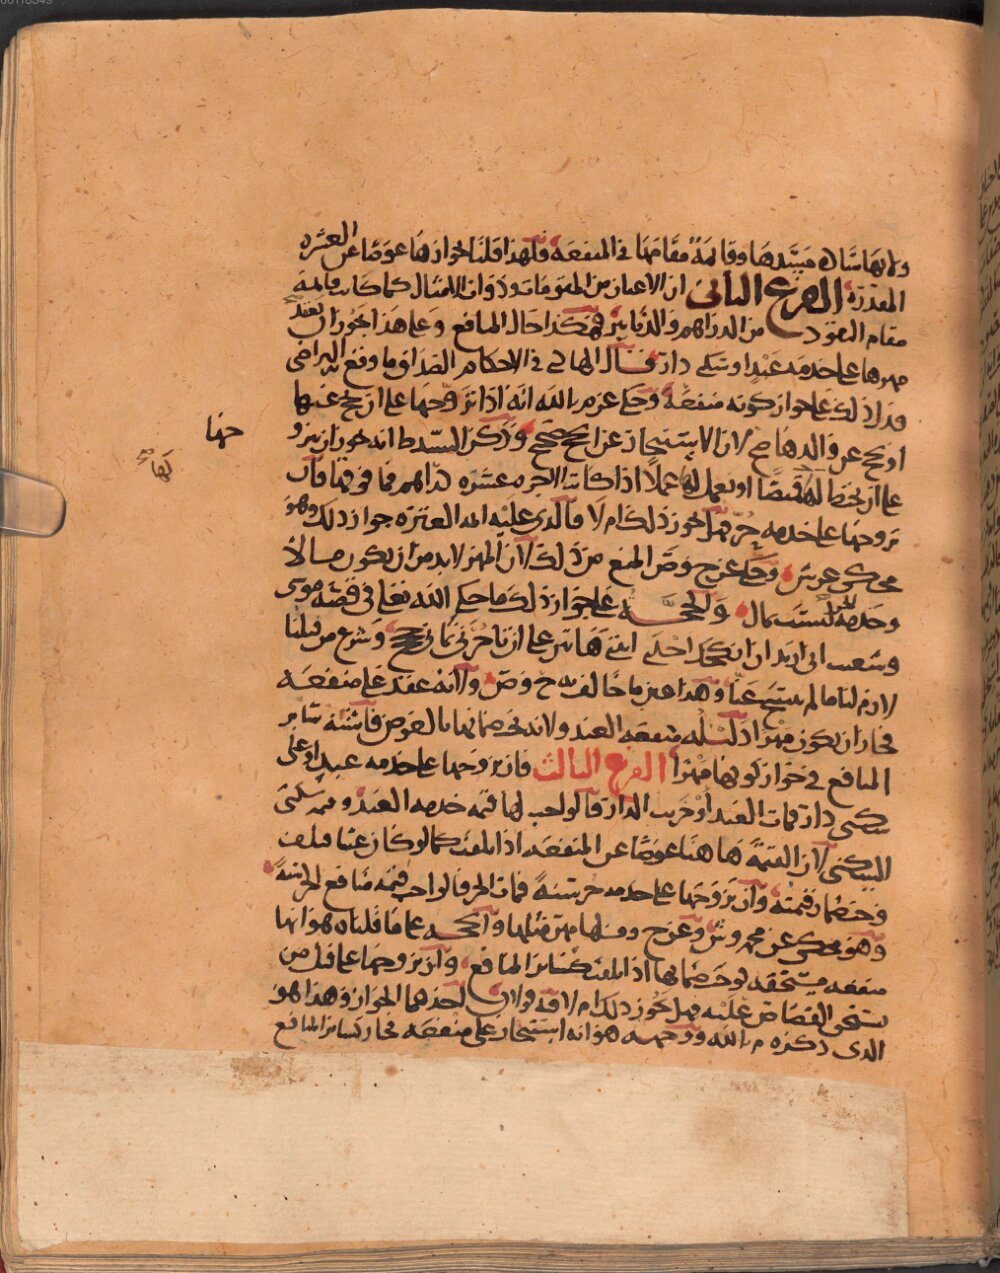 ولانها سادة مسدها وقائمة مقامها في المنفعة فلهذا قلنا بجوازها عوضا عن العشرة
المقدرة الفرع الثاني ان الاعيان من المقومات وذوات الامثال كما كانت قائمة
مقام النقود من الدراهم والدنانير فهكذا حال المنافع وعلى هذا يجوز ان يعقد
مهرها على خدمة عبد او سكنى دار قال الهادي في الاحكام الصداق ما وقع به التراضي
فدل ذلك على جواز كونه منفعة وحكى عن م بالله انه اذا تزوجها على ان يحج عنها
او يحج عن والدها صح لان الاستيجار عن الحج صحيح وذكر السيد ط انه يجوز ان يتزو
جها
على ان يخيط لها قميصا او يعمل لها عملا اذا كانت الاجرة عشرة دراهم فما فوقها فان
لها
تزوجها على خدمة حر فهل يجوز ذلك ام لا فالذي عليه ائمة العترة جواز ذلك وهو
محكي عن ش وحكي عن ح وص المنع من ذلك لان المهر لا بد من ان يكون مالا
وخدمة الحر ليست بمال والحجة على جواز ذلك ما حكى الله تعالى في قصة موسى
وشعيب اني اريد ان انكحك احدى ابنتي هاتين على ان تاجرني ثماني حجج وشرع من قبلنا
لازم لنا ما لم ينسخ عنا وهذا عين ما خالف فيه ح وص ولانه عقد على منفعة
فجاز ان يكون مهرا دليله منفعة العبد ولانه يجوز ضمانها بالعوض فاشبه سائر
المنافع في جواز كونها مهرا الفرع الثالث فان تزوجها على خدمة عبد او على
سكنى دار فمات العبد او خربت الدار قالوا وجب لها قيمة خدمة العبد وقيمة سكنى
السكنى لان القيمة ها هنا عوضا عن المنفعة اذا تلفت كما لو كان عينا فتلف
وجب ضمان قيمته وان تزوجها على خدمة حر سنة فمات الحر قالوا وجب قيمة منافع الحر سنة
وهو محكي عن محمد وش وعن ح ومنها مهر مثلها والحجة على ما قلناه هو انها
منفعة مستحقة فوجب ضمانها اذا تلفت كسائر المنافع وان تزوجها على قتل من
يستحق القصاص عليه فهل يجوز ذلك ام لا فيه قولان احدهما الجواز وهذا هو
الذي ذكره م بالله ووجهه هو انه استيجار على منفعة فجاز كسائر المنافع